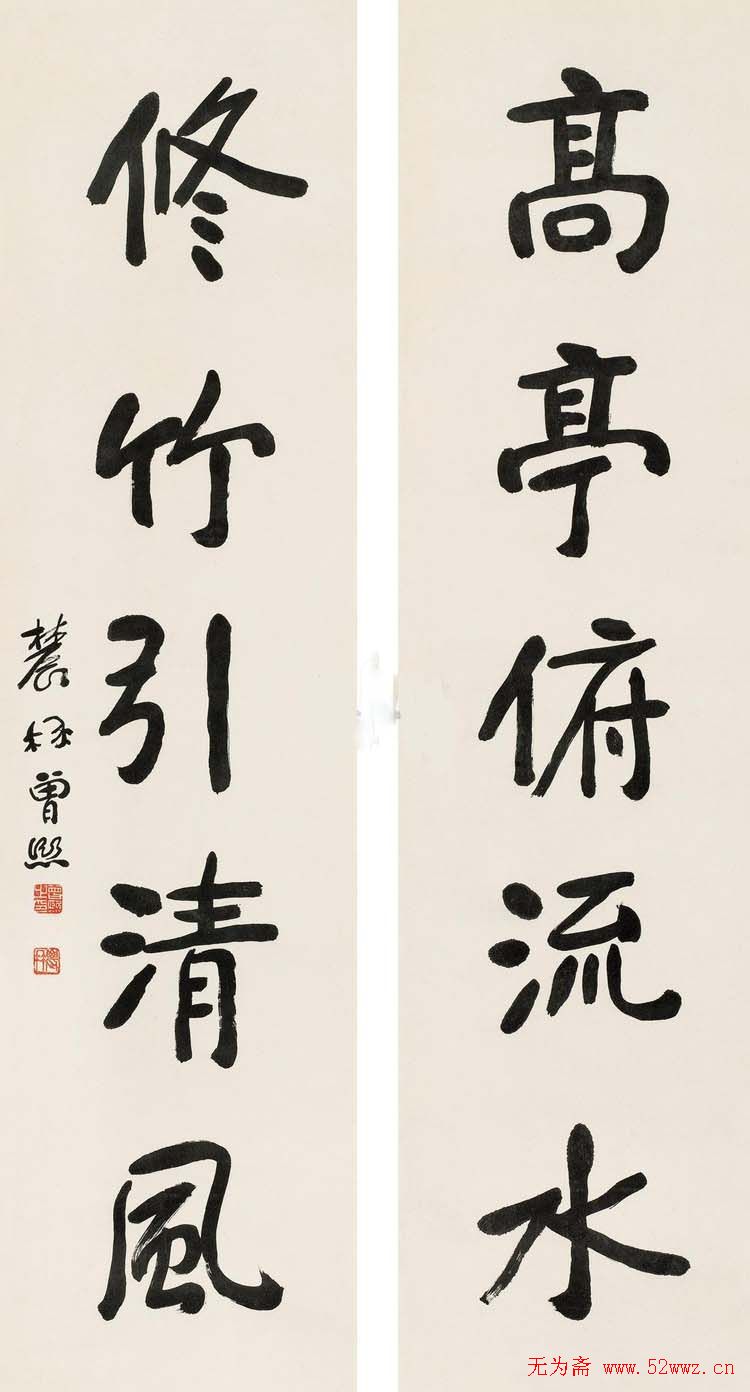 高亭俯流水
修竹引清風
農髯曾熙
曾熙之印
无为斋 www.52wwz.cn